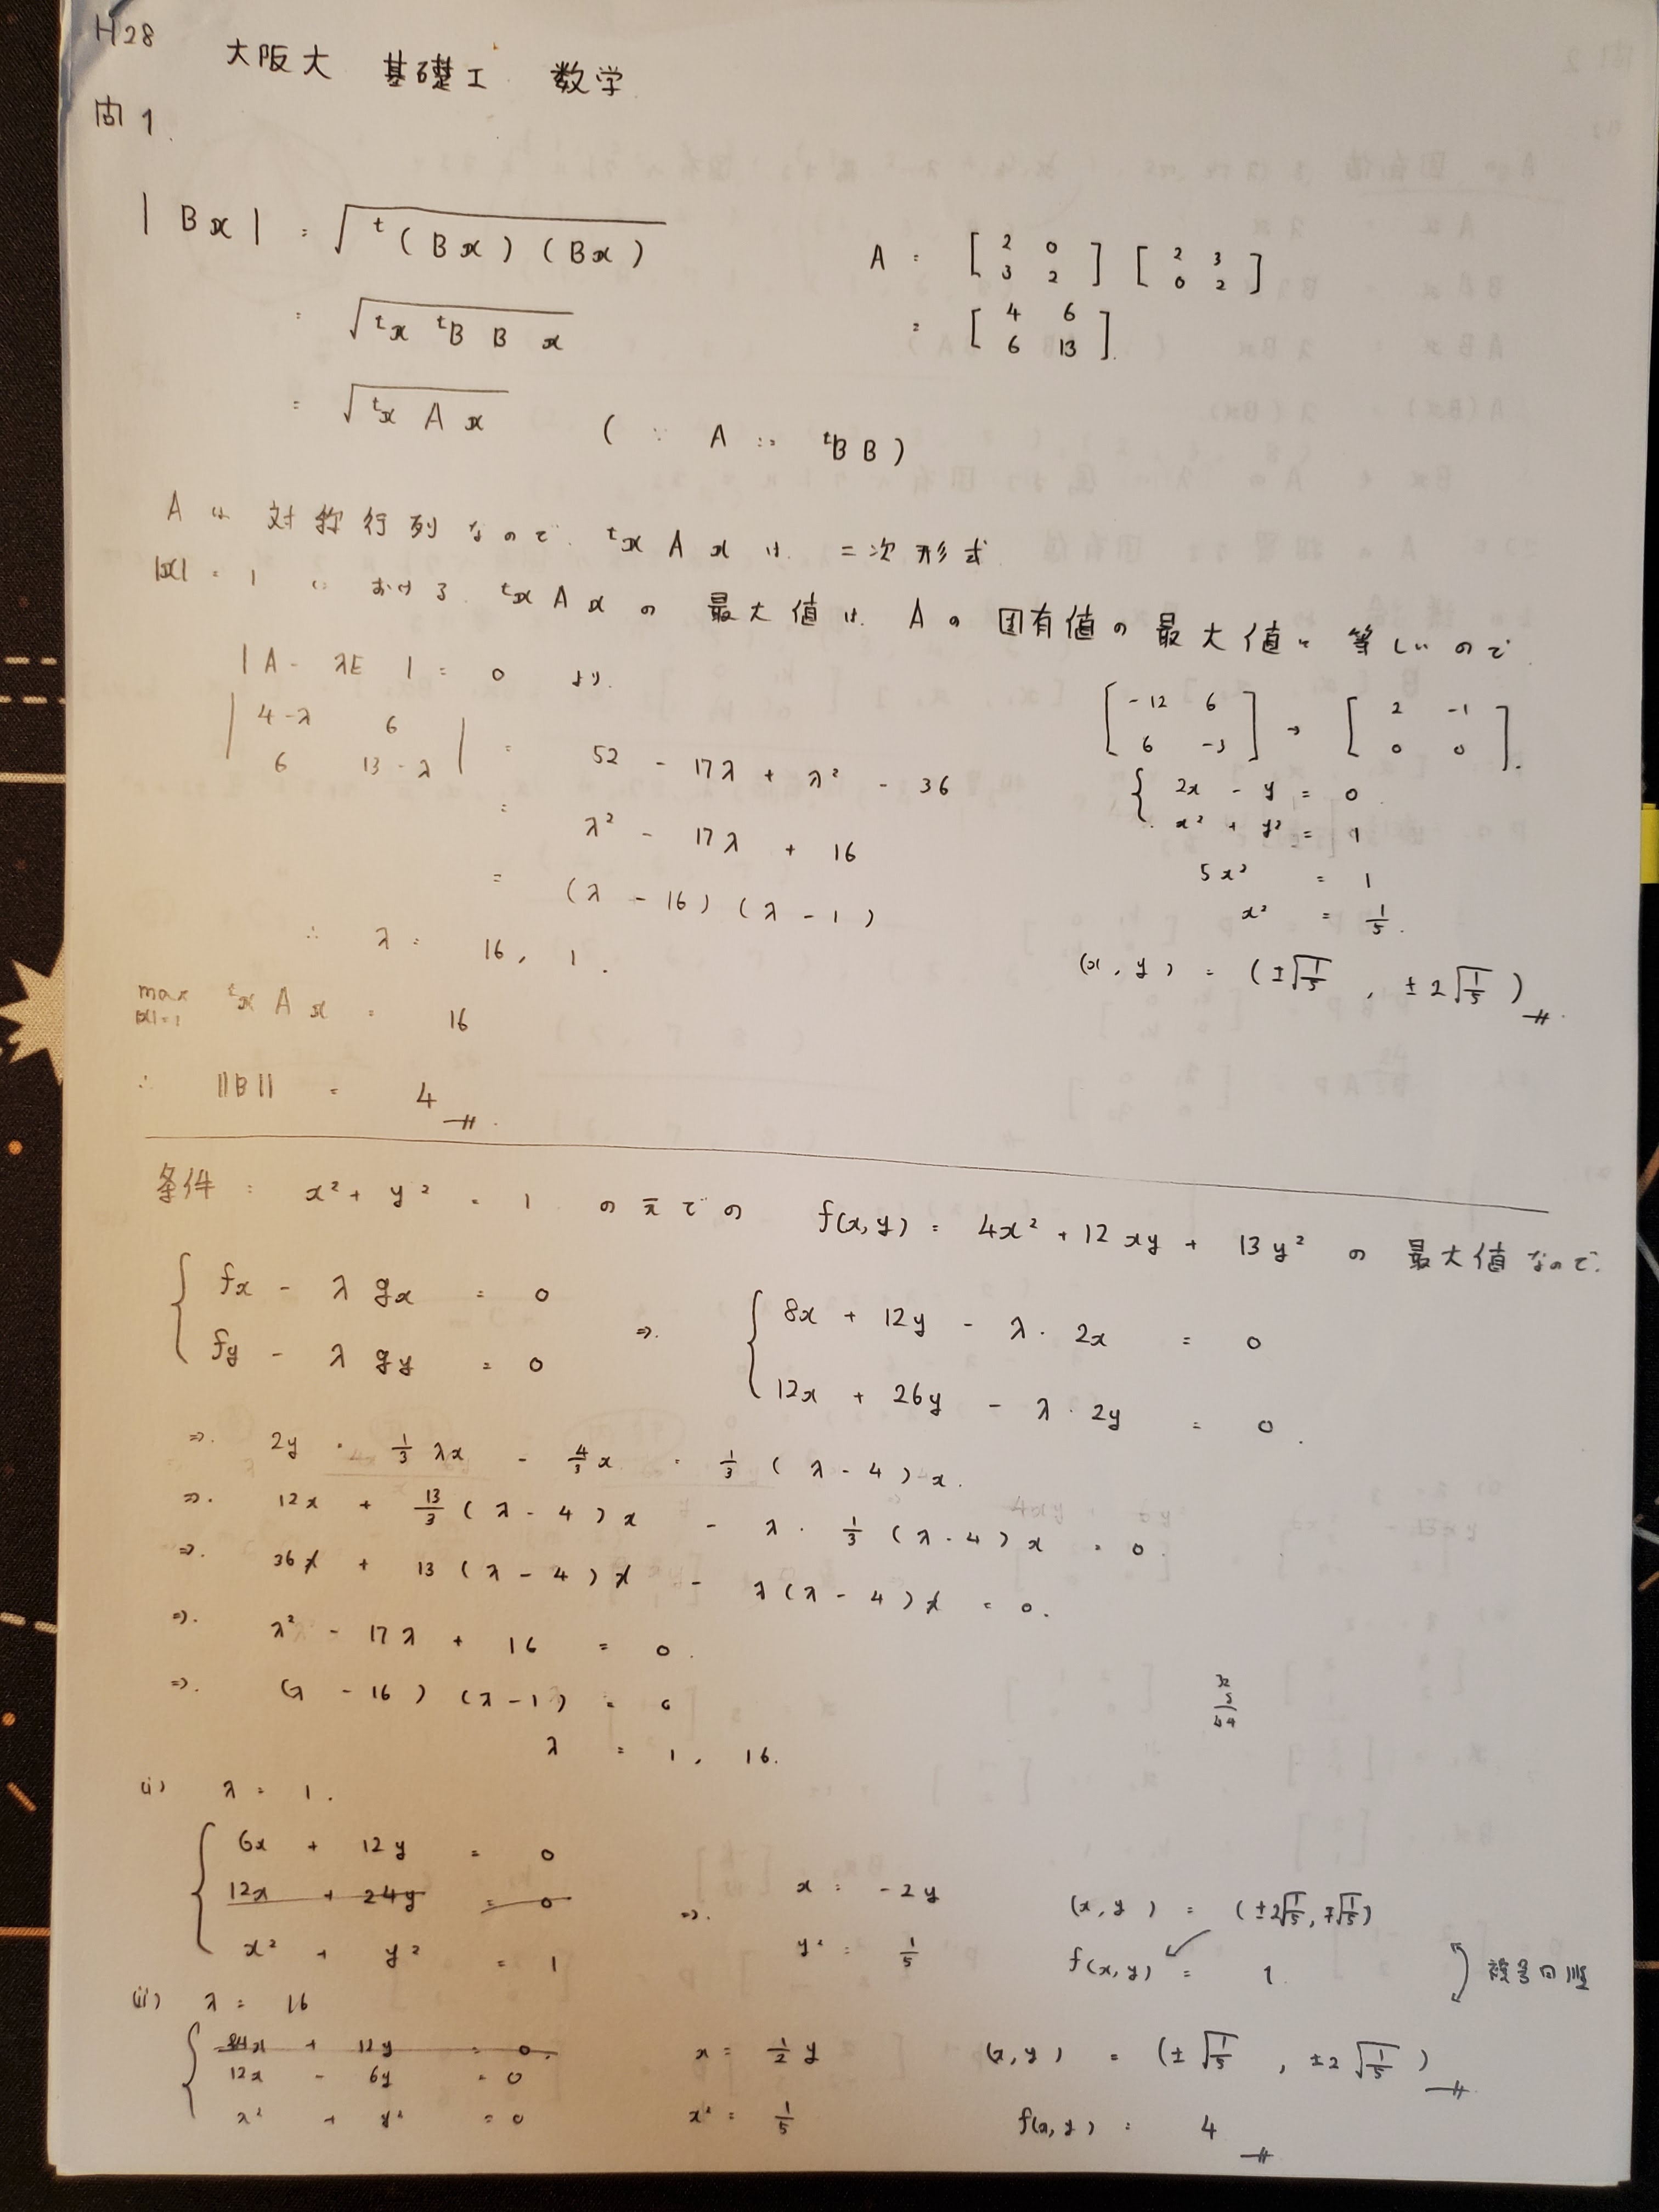 H28 大阪大 基礎工 数学
問1
|Bx| = √(ᵗ(Bx)(Bx))
= √(ᵗx ᵗB B x)
= √(ᵗx A x) (∵ A := ᵗBB)
A = [2 0; 3 2] [2 3; 0 2]
= [4 6; 6 13].
Aは対称行列なので、ᵗxAxは 二次形式
|x| = 1 における ᵗxAxの最大値は Aの固有値の最大値に等しいので
|A - λE| = 0 より
|4-λ 6; 6 13-λ| = 52 - 17λ + λ² - 36
= λ² - 17λ + 16
= (λ - 16)(λ - 1)
∴ λ = 16, 1.
max |x|=1 ᵗxAx = 16
∴ ||B|| = 4
[-12 6; 6 -3] → [2 -1; 0 0].
{ 2x - y = 0
x² + y² = 1
5x² = 1
x² = 1/5.
(x, y) = (±√(1/5), ±2√(1/5))
条件: x² + y² = 1 の下での f(x,y) = 4x² + 12xy + 13y² の最大値なので.
{ fx - λgx = 0
fy - λgy = 0
⇒ { 8x + 12y - λ·2x = 0
12x + 26y - λ·2y = 0.
⇒. 2y = 1/3 λx - 4/3 x = 1/3 (λ - 4)x.
⇒. 12x + 13/3 (λ - 4)x - λ·1/3 (λ - 4)x = 0.
⇒. 36x + 13(λ - 4)x - λ(λ - 4)x = 0.
⇒. λ² - 17λ + 16 = 0.
⇒. (λ - 16)(λ - 1) = 0
λ = 1, 16.
(i) λ = 1.
{ 6x + 12y = 0
12x + 24y = 0
x² + y² = 1
⇒. x = -2y
y² = 1/5
(x, y) = (±2√(1/5), ∓√(1/5))
f(x,y) = 1
複号同順
(ii) λ = 16
{ 24x + 12y = 0.
12x - 6y = 0
x² + y² = 0
x = 1/2 y
x² = 1/5
(x, y) = (±√(1/5), ±2√(1/5))
f(x,y) = 4